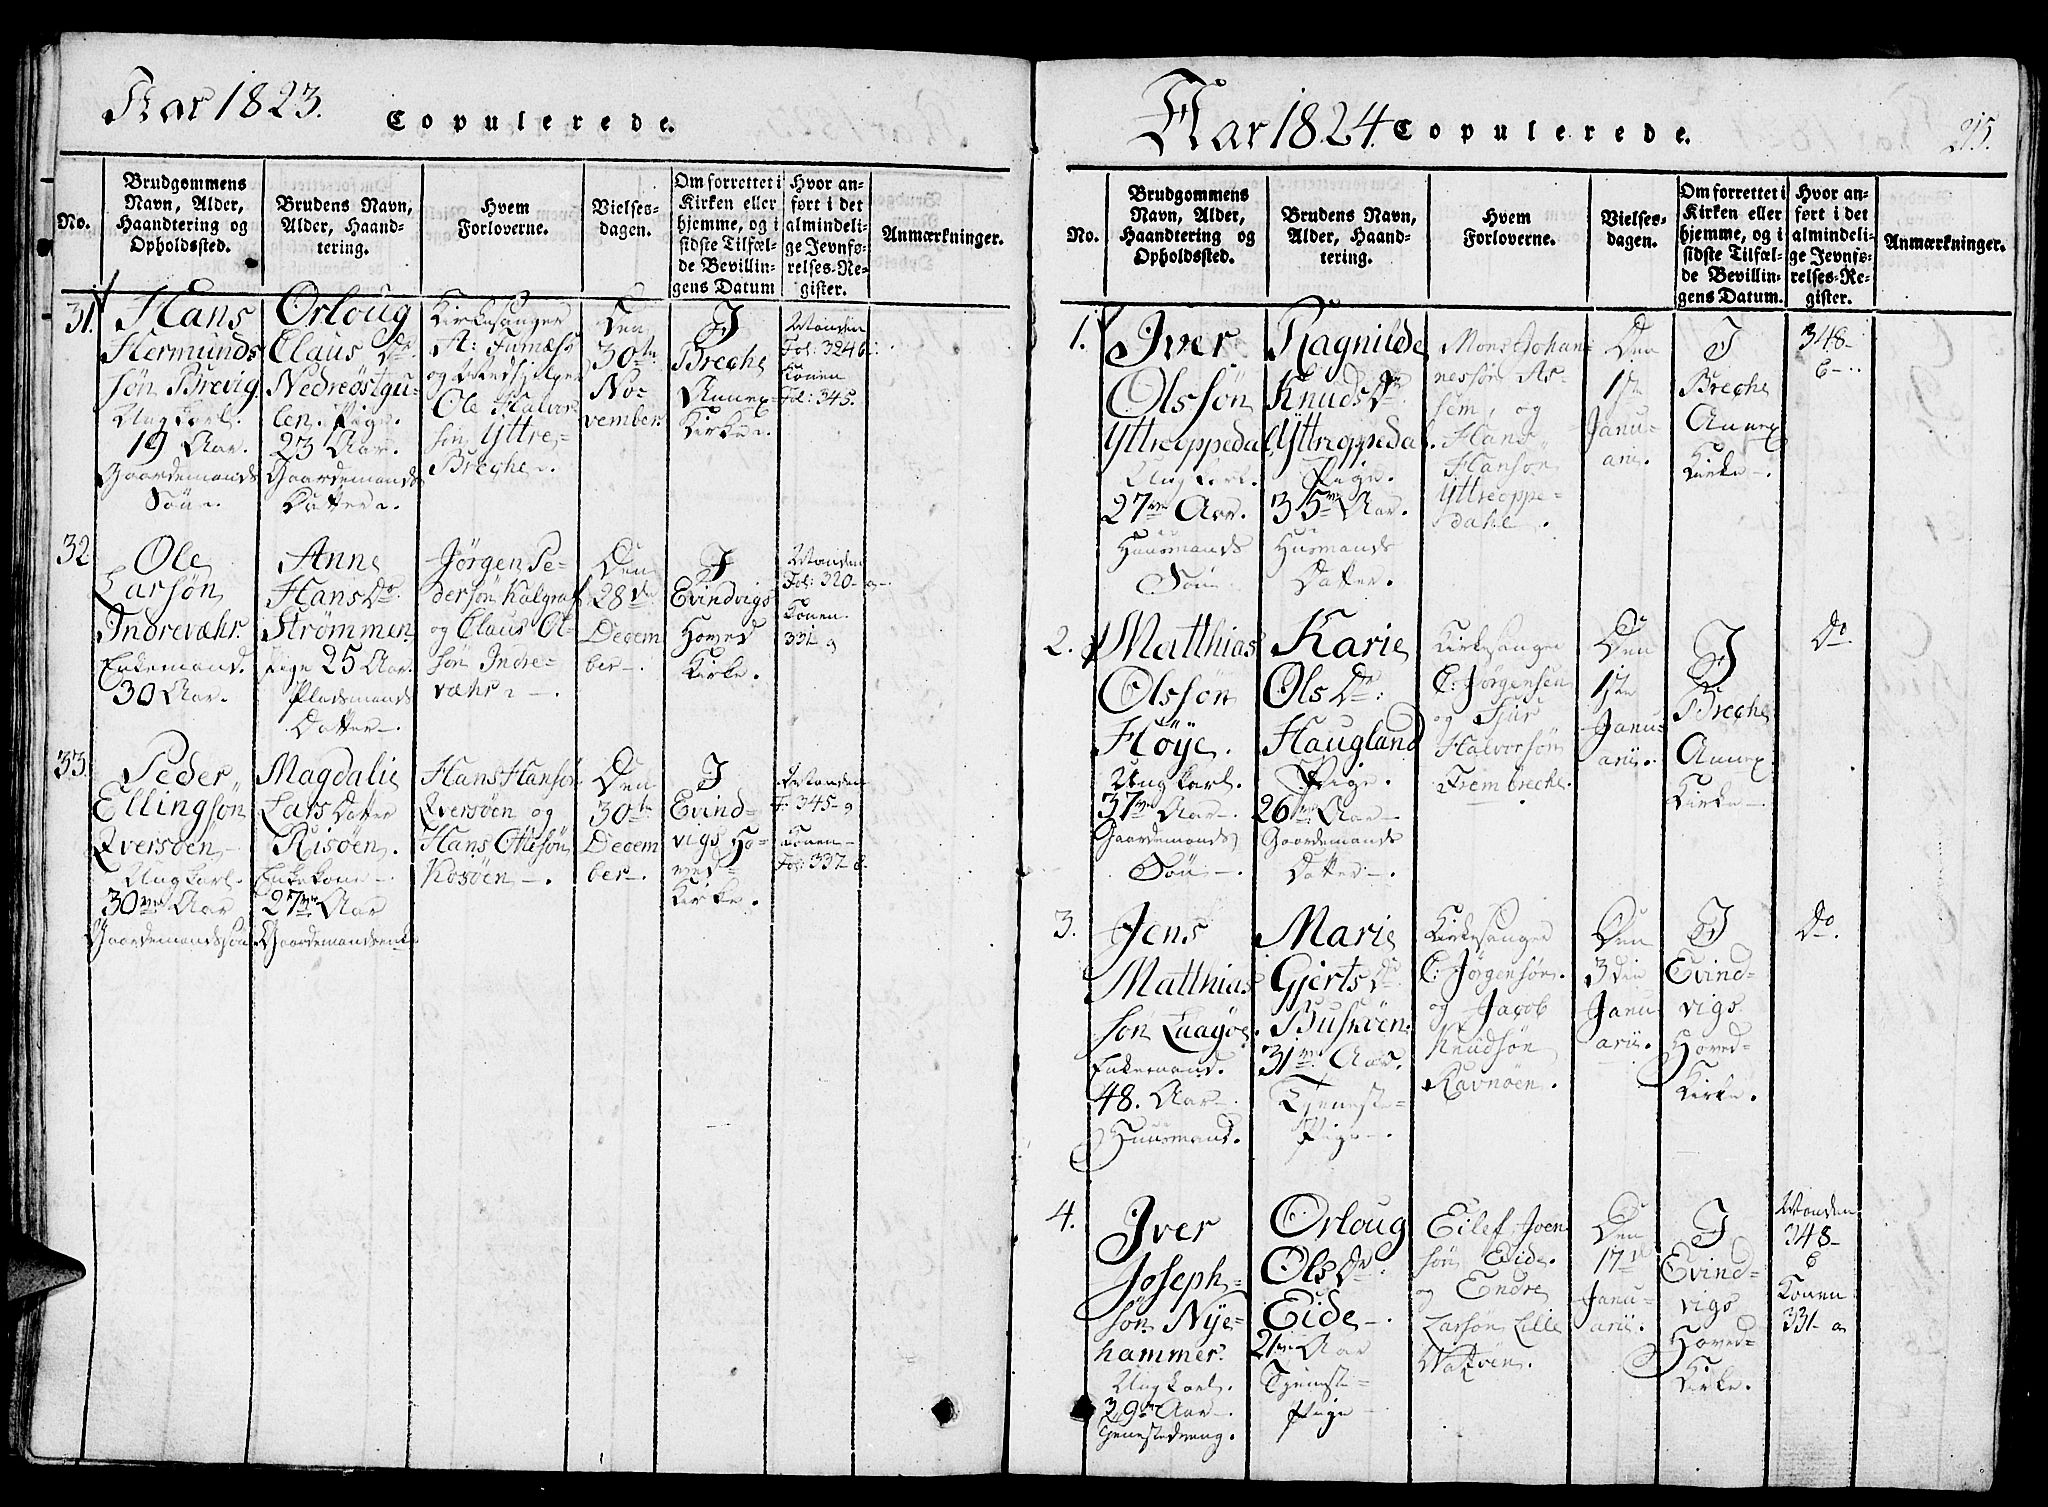 Aar 1823.
Copulerede.
No.
Brudgommens
Navn, Alder,
Haandtering og
Opholdssted.
Brudens Navn,
Alder, Haand-
tering.
Hvem
Forloverne.
Vielses-
dagen.
Om forrettet i
Kirken eller
hjemme, og i
sidste Tilfæl-
de Bevillin-
gens Datum
Hvor an-
ført i det
almindeli-
ge Jevnfø-
relses-Re-
gister.
Anmærkninger.
31.
Hans
Hermunds
søn Brevig.
Ungkarl.
19 Aar.
Gaardemands
Søn.
Orloug
Claus Dr.
Nedreøstgu-
len. Pige.
23 Aar.
Gaardemands
Datter.
Kirkesanger
A:
og Medhjelper
Ole Halvor
søn Yttre-
Breche.
Den
30te
No-
vember.
I
Breche
Annex
Kirke.
Manden
Fol: 324 b.
Konen
Fol: 345.
32
Ole
Larsøn
Indrevæhr.
Enkemand.
30 Aar.
Anne
Hans Dr.
Strømmen
Pige 25 Aar.
Pladsmands
Datter.
Jørgen Pe-
dersøn Kalgraf
og Claus Ol-
søn Indre-
væhr.
Den
28de
Decem
ber.
I
Evindvigs
Hoved
Kirke.
Manden
Fol: 320 a
Konen
331 a
33.
Peder
Ellingsøn
Qversøen
Ungkarl.
30 Aar
Gaardemandssøn
Magdalie
Lars Datter
Risøen.
Enkekone.
27 Aar
Gaardemandsenke
Hans Hansøn
Qversøen og
Hans Ottesøn
Kosøen.
Den
30te
Decem
ber.
I
Evind-
vigs Ho-
ved-
Kirke.
Manden
F: 345 a
Konen
Fol: 337 b.
Aar 1824.
Copulerede.
215.
No.
Brudgommens
Navn, Alder,
Haandtering og
Opholdssted.
Brudens Navn,
Alder, Haand-
tering.
Hvem
Forloverne.
Vielses-
dagen.
Om forrettet i
Kirken eller
hjemme, og i
sidste Tilfæl-
de Bevillin-
gens Datum.
Hvor an-
ført i det
almindeli-
ge Jevnfø-
relses-Re-
gister.
Anmærkninger.
1.
Iver
Olssøn
Yttreoppedal
Ungkarl.
27 Aar.
Huusmands
Søn
Ragnilde
Knuds Dr.
Yttreoppedal.
Pige.
35 Aar.
Husmands
Datter.
Mons Johan
nessøn As-
sem, og
Hans
Hansøn
Yttreoppe-
dahl.
Den
1ste
Janu-
arii.
I
Breche
Annex
Kirke.
348
b
2.
Matthias
Olssøn
Høye.
Ungkarl.
37 Aar.
Gaardemands
Søn.
Karie
Ols Dr.
Haugland
Pige.
26 Aar
Gaardemands
Datter.
Kirkesanger
C: Jørgensen
og Sjur
Halvorsøn
Frembreche.
Den
1ste
Janu-
arii.
I
Breche
Annex
Kirke.
Do.
3.
Jens
Matthias
søn Laagøe.
Enkemand.
48. Aar.
Huusmand.
Marie
Gjerts Dr.
Buskøen.
31 Aar.
Tjeneste-
Pige.
Kirkesanger
C: Jørgensøn.
og Jacob
Knudsøn
Ravnøen.
Den
3die
Janu
arii.
I
Evind-
vigs
Hoved-
Kirke.
Do.
4.
Iver
Joseph-
søn Nye-
hammer.
Ungkarl.
29 Aar.
Tjenestedreng.
Orloug
Ols Dr.
Eide.
21 Aar
Tjeneste-
Pige
Eilef Joen
søn Eide.
og Endre
Larsøn Lille
Den
17de
Janu-
arii.
I
Evind-
vigs
Hoved-
Kirke.
Manden
348
b
Konen
331 a